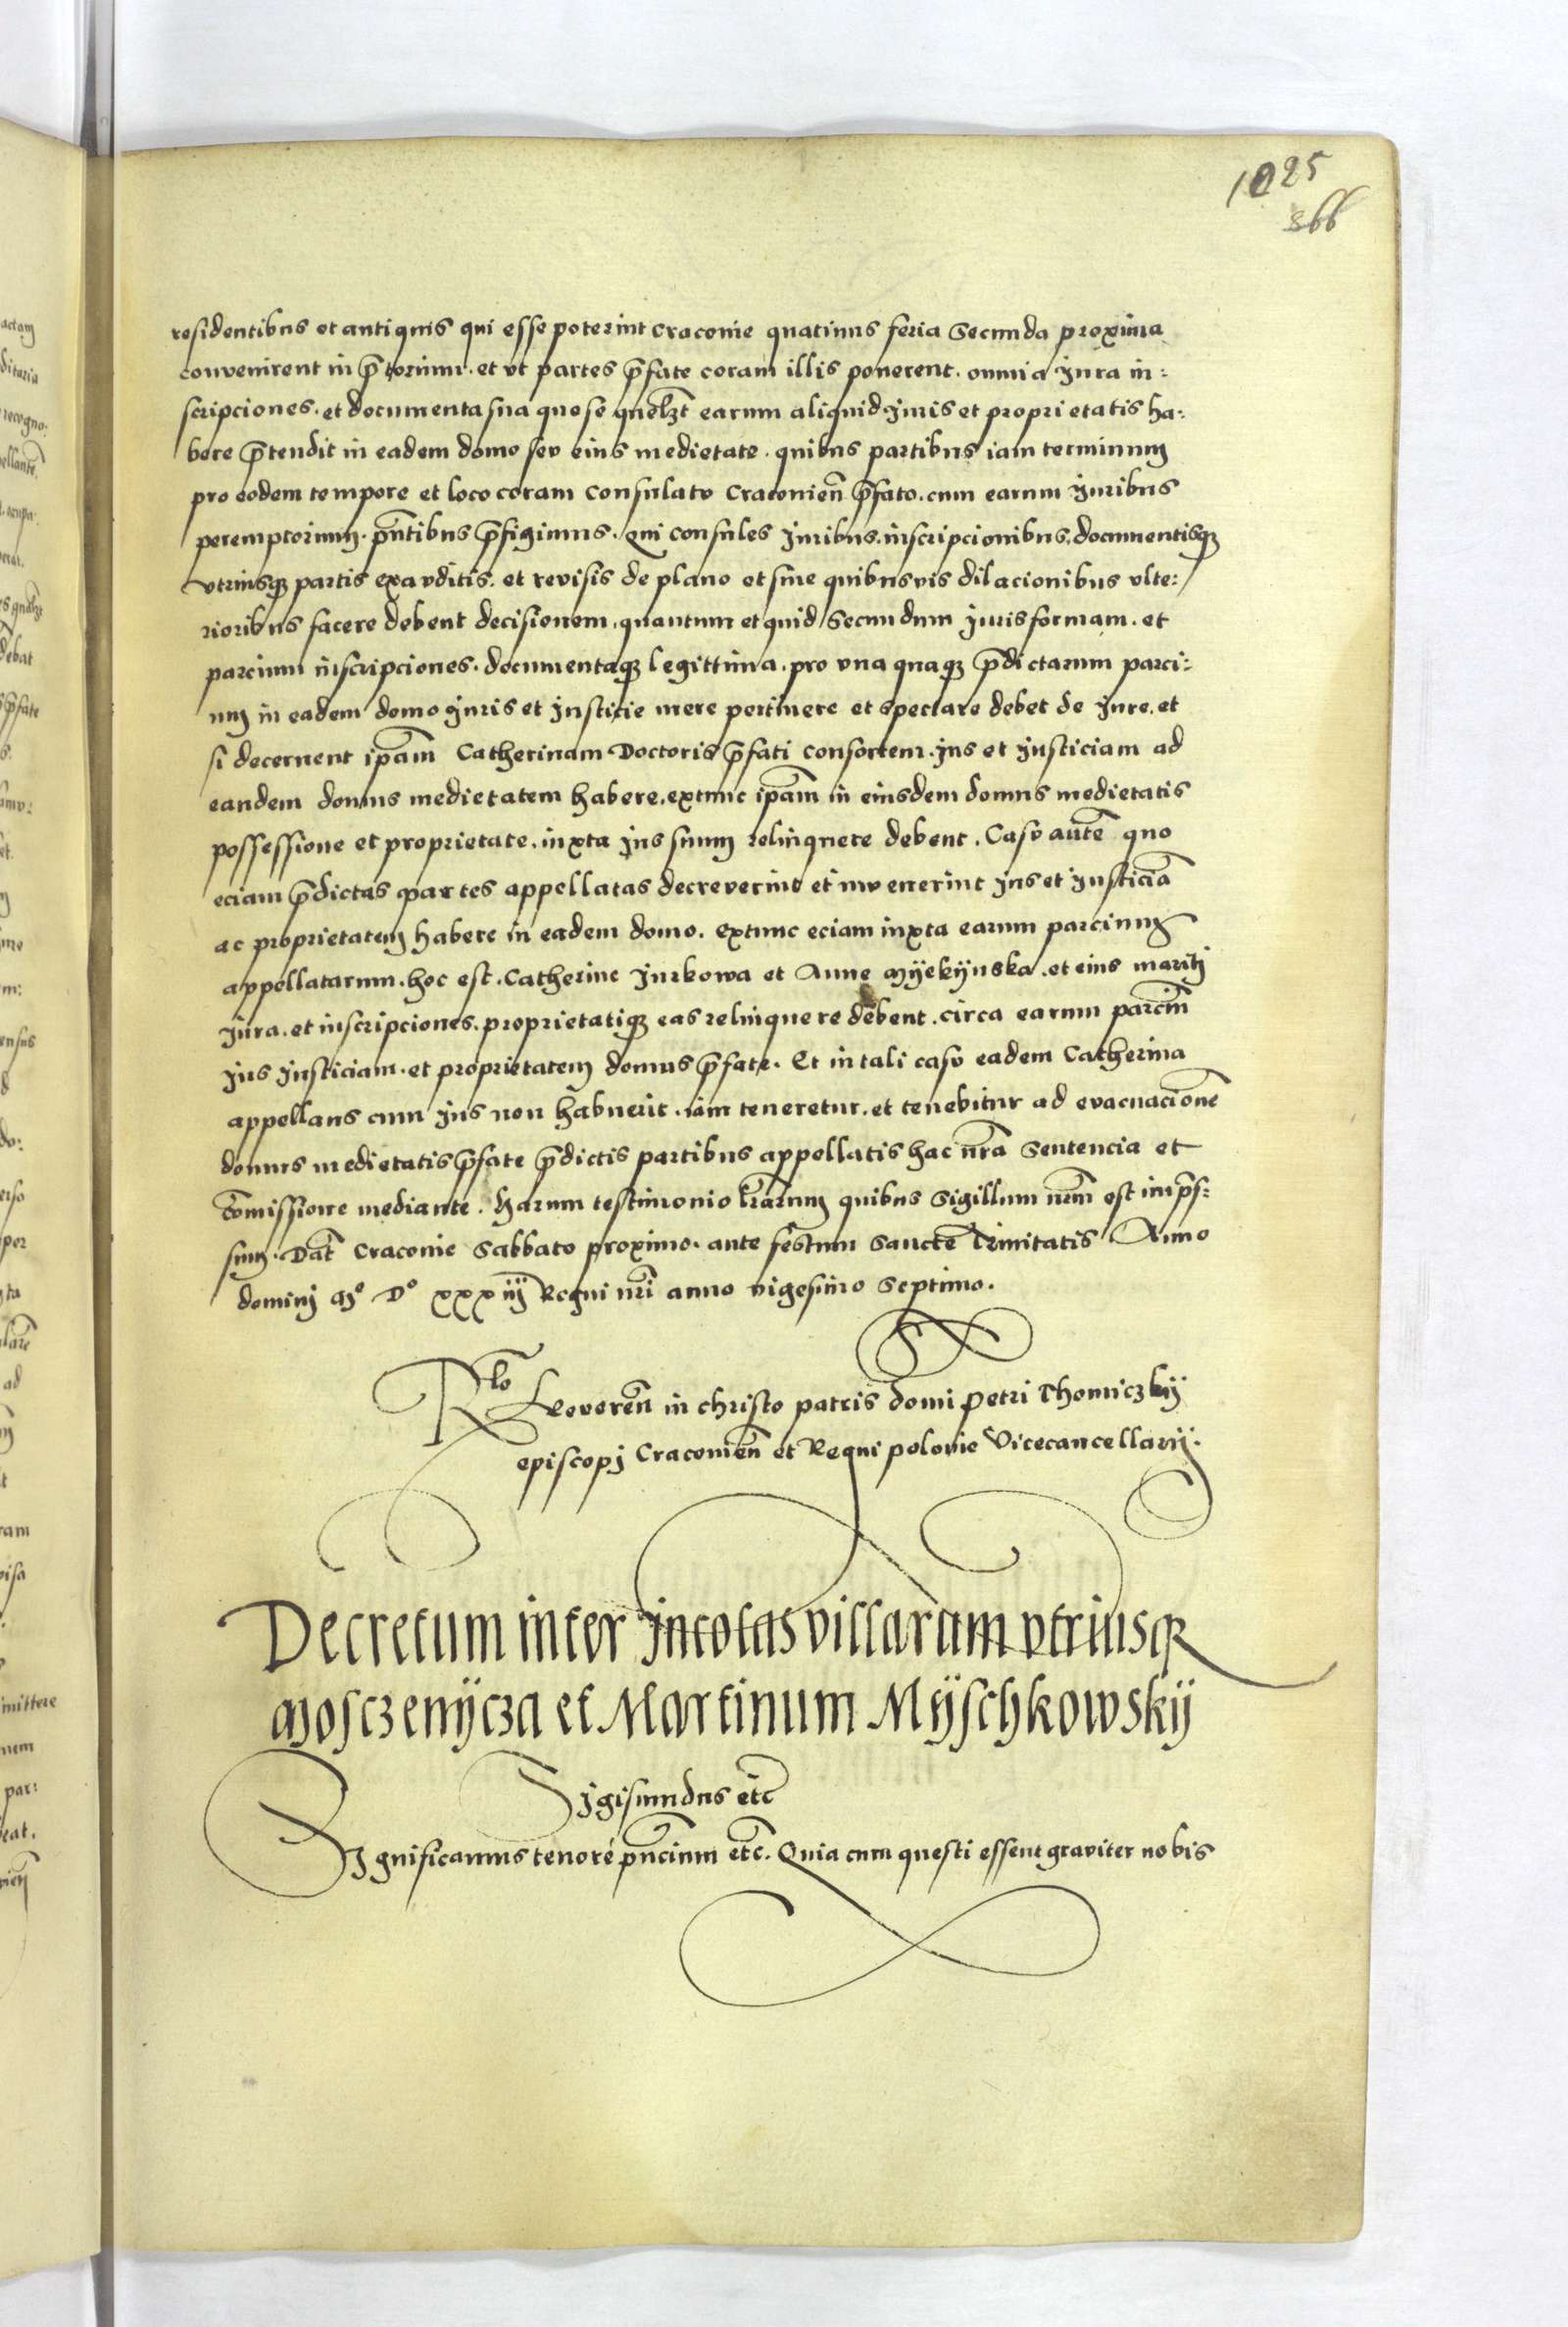 1025
366
residentibus et antiquis qui esse poterint Craconie quatinus feria Secunda proxima
convenirent in p̄torium. et vt partes p̄fate coram illis ponerent. omnia Jura in:
scripciones. et documenta sua que se quelꝫt earum aliquid Juris et proprietatis ha:
bere p̄tendit in eadem domo seu eius medietate. quibus partibus iam terminum
pro eodem tempore et loco coram Consulatu Craconien̄ p̄fato. cum earum Juribus
peremptorium. pn̄tibus p̄figimus. Qui Consules Juribus. inscripcionibus. documentisqꝫ
vtriusqꝫ partis exauditis. et revisis de plano et sine quibusvis dilacionibus vlte:
rioribus facere debent decisionem. quantum et quid Secundum Juris formam. et
parcium inscripciones. documentaqꝫ legittima. pro vna quaqꝫ p̄dictarum parci:
um in eadem domo Juris et Justicie mere pertinere et spectare debet de Jure. et
si decernent ip̄am Catherinam Doctoris p̄fati Consortem. Jus et Justiciam ad
eandem domus medietatem habere. extunc ip̄am in eiusdem domus medietatis
possessione et proprietate. iuxta Jus suum relinquere debent. Casu aut̄e quo
eciam p̄dictas partes appellatas decreverint et invenerint Jus et Justiciā
ac proprietatem habere in eadem domo. extunc eciam iuxta earum parcium
appellatarum. hoc est. Catherine Jurkowa et Anne Myekÿnska. et eius mariti
Jura. et inscripciones. proprietatiqꝫ eas relinquere debent. circa earum parcīm
Jus Justiciam. et proprietatem domus p̄fate. Et in tali casu eadem Catherina
appellans cum Jus non habuerit. iam teneretur. et tenebitur ad evacuacionē
domus medietatis p̄fate p̄dictis partibus appellatis hac nr̄a Sentencia et
cōmissione mediante. Harum testimonio lr̄arum quibus Sigillum nr̄m est imp̄s:
sum. Dat̄ Craconie Sabbato proximo. ante festum Sancte Trinitatis Anno
domini Mº Dº xxxiij Regni nr̄i anno vigesimo Septimo.
Rlo Reveren̄ in christo patris domi Petri Thomiczkÿ
episcopi Craconien̄ et Regni polonie Vicecancellarÿ.
Decretum inter Jncolas villarum vtriusqꝫ
Mosczenÿcza et Martinum Mÿschkowskÿ
Sigismundus etc̄
Significamus tenore pn̄cium etc̄. Quia cum questi essent graviter nobis